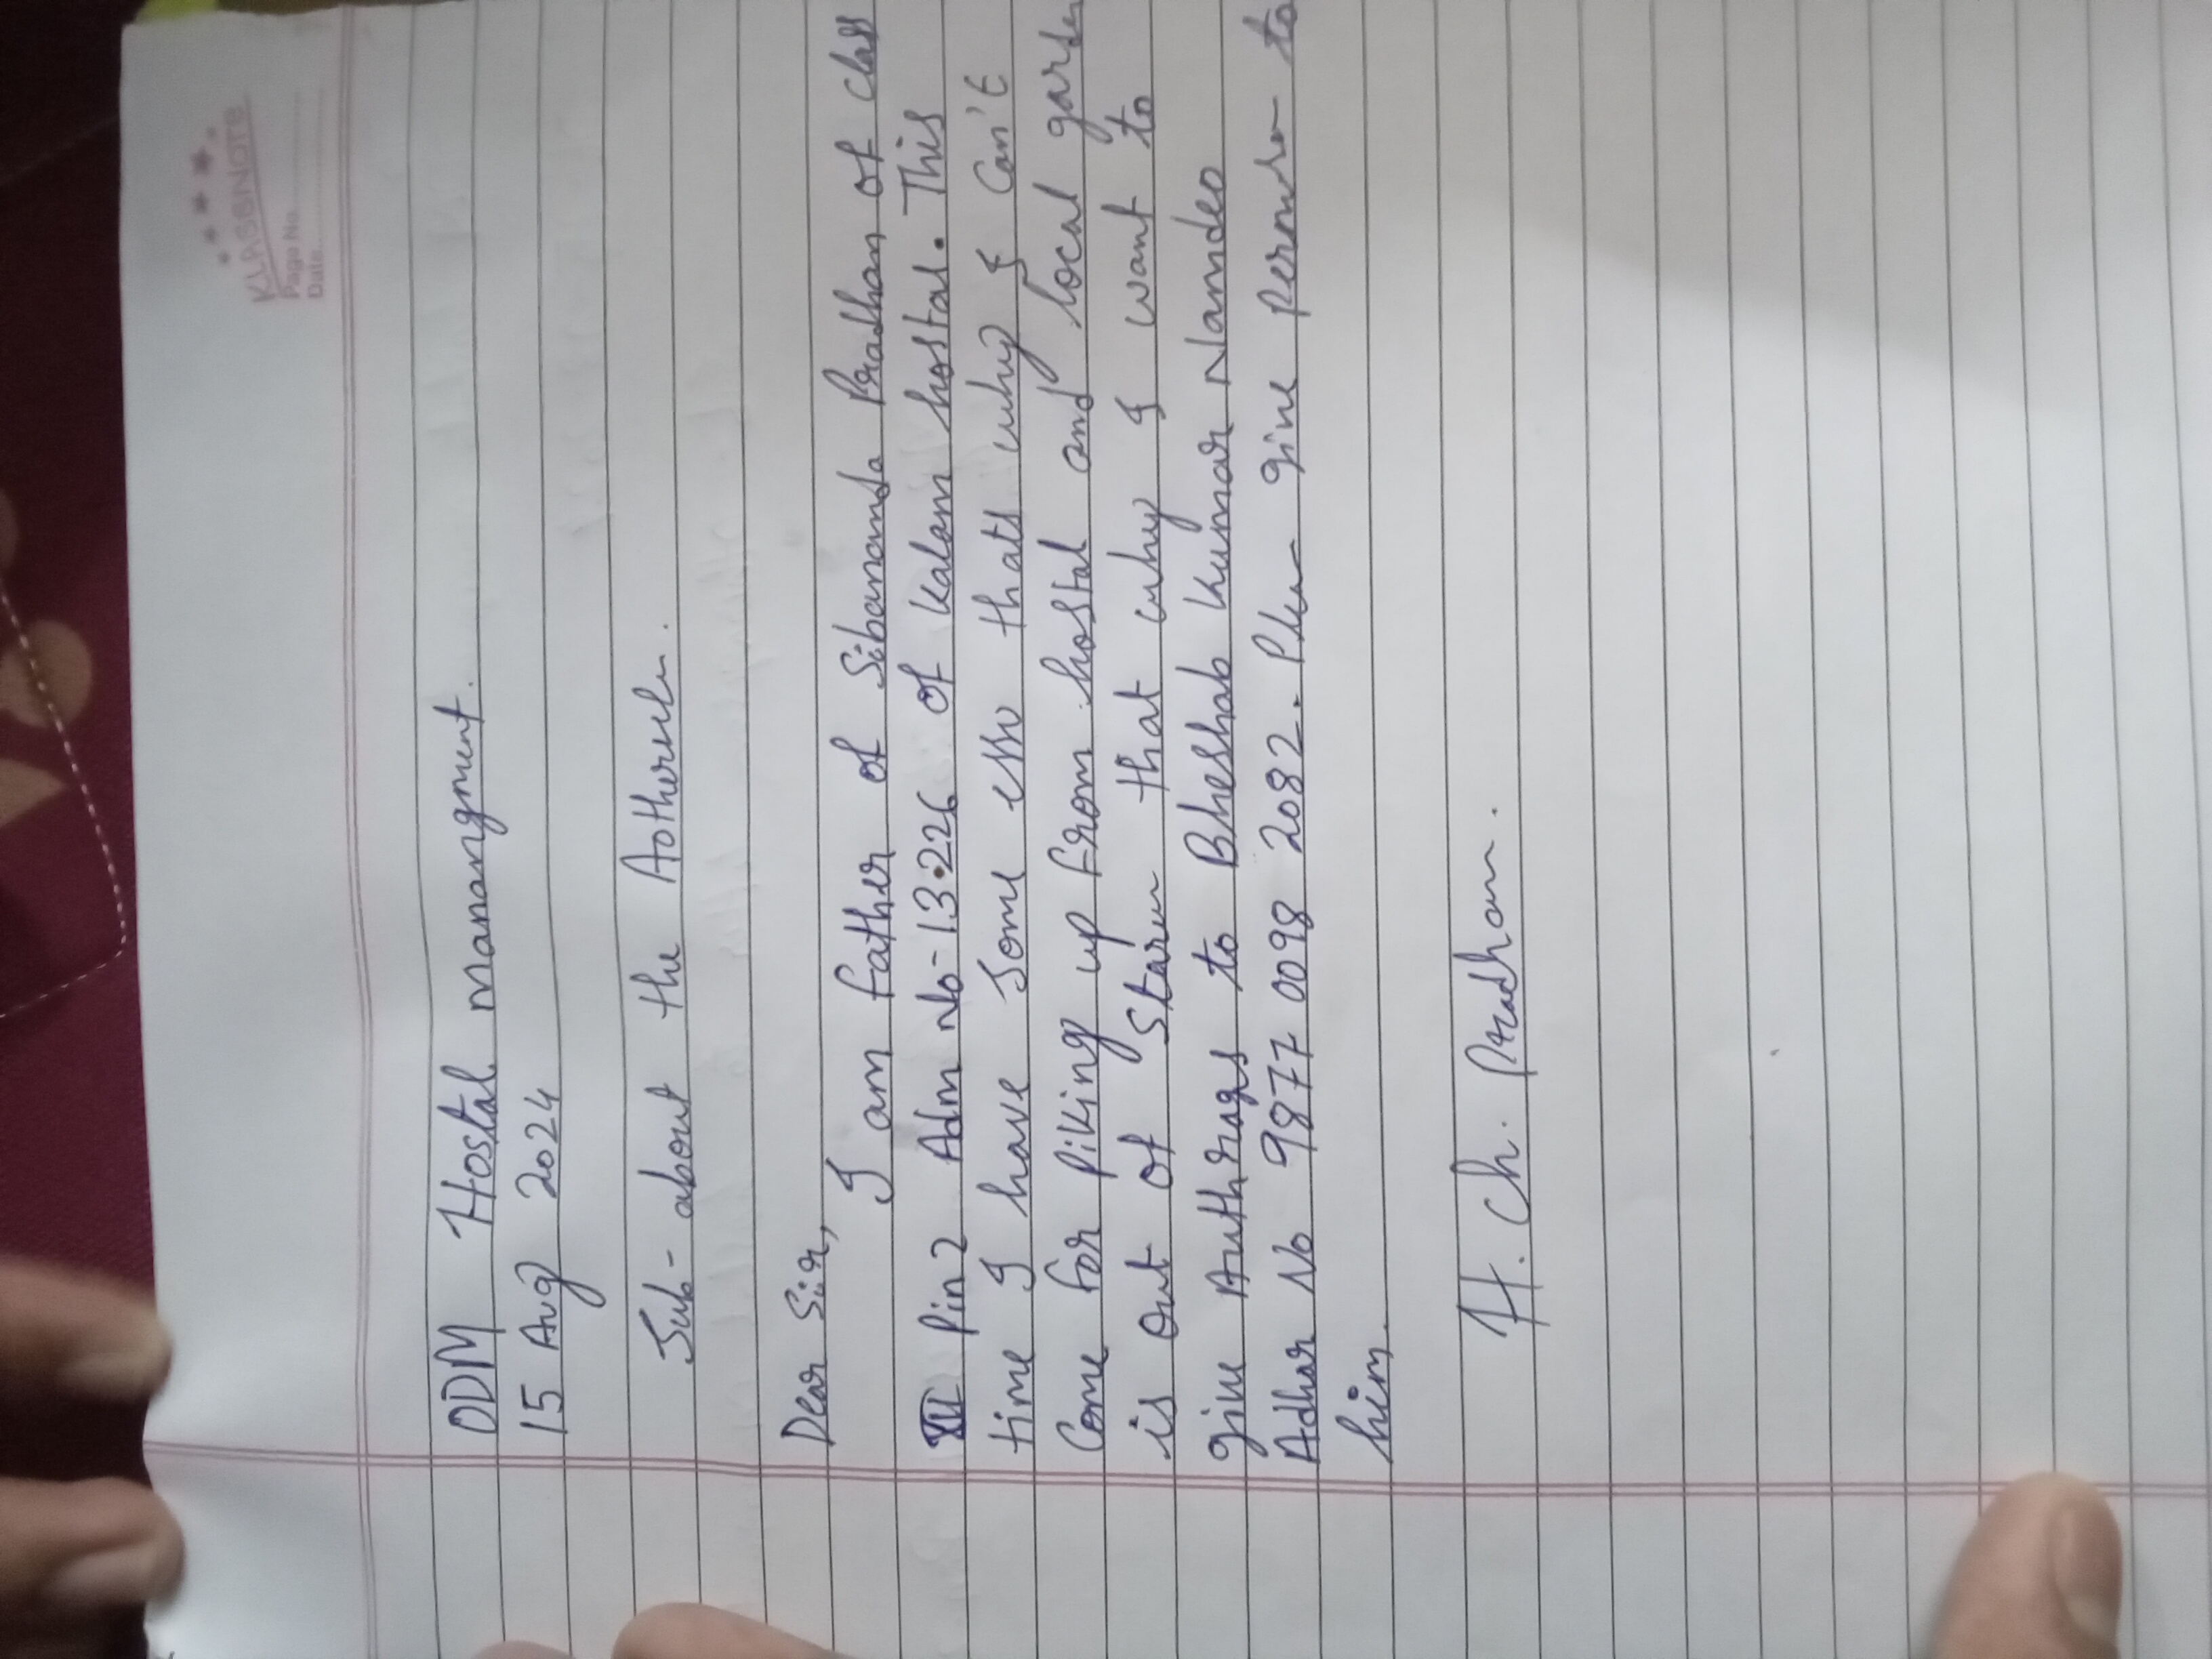 KLASSNOTE
Page No.
Date
ODM Hostal manangment.
15 Aug 2024
Sub- about the
Dear Sir,
I am father of Sibananda Pradhan of class
XII Pin 2 Adm No- 13226 of Kalam hostal. This
time I have some thats why I Can't
Come for piking up from hostal and local
is out of that why I want to
give to Bheshab Kumar Namdeo
Adhar No 9877 0098 2082. give to
him.
H. Ch. Pradhan.